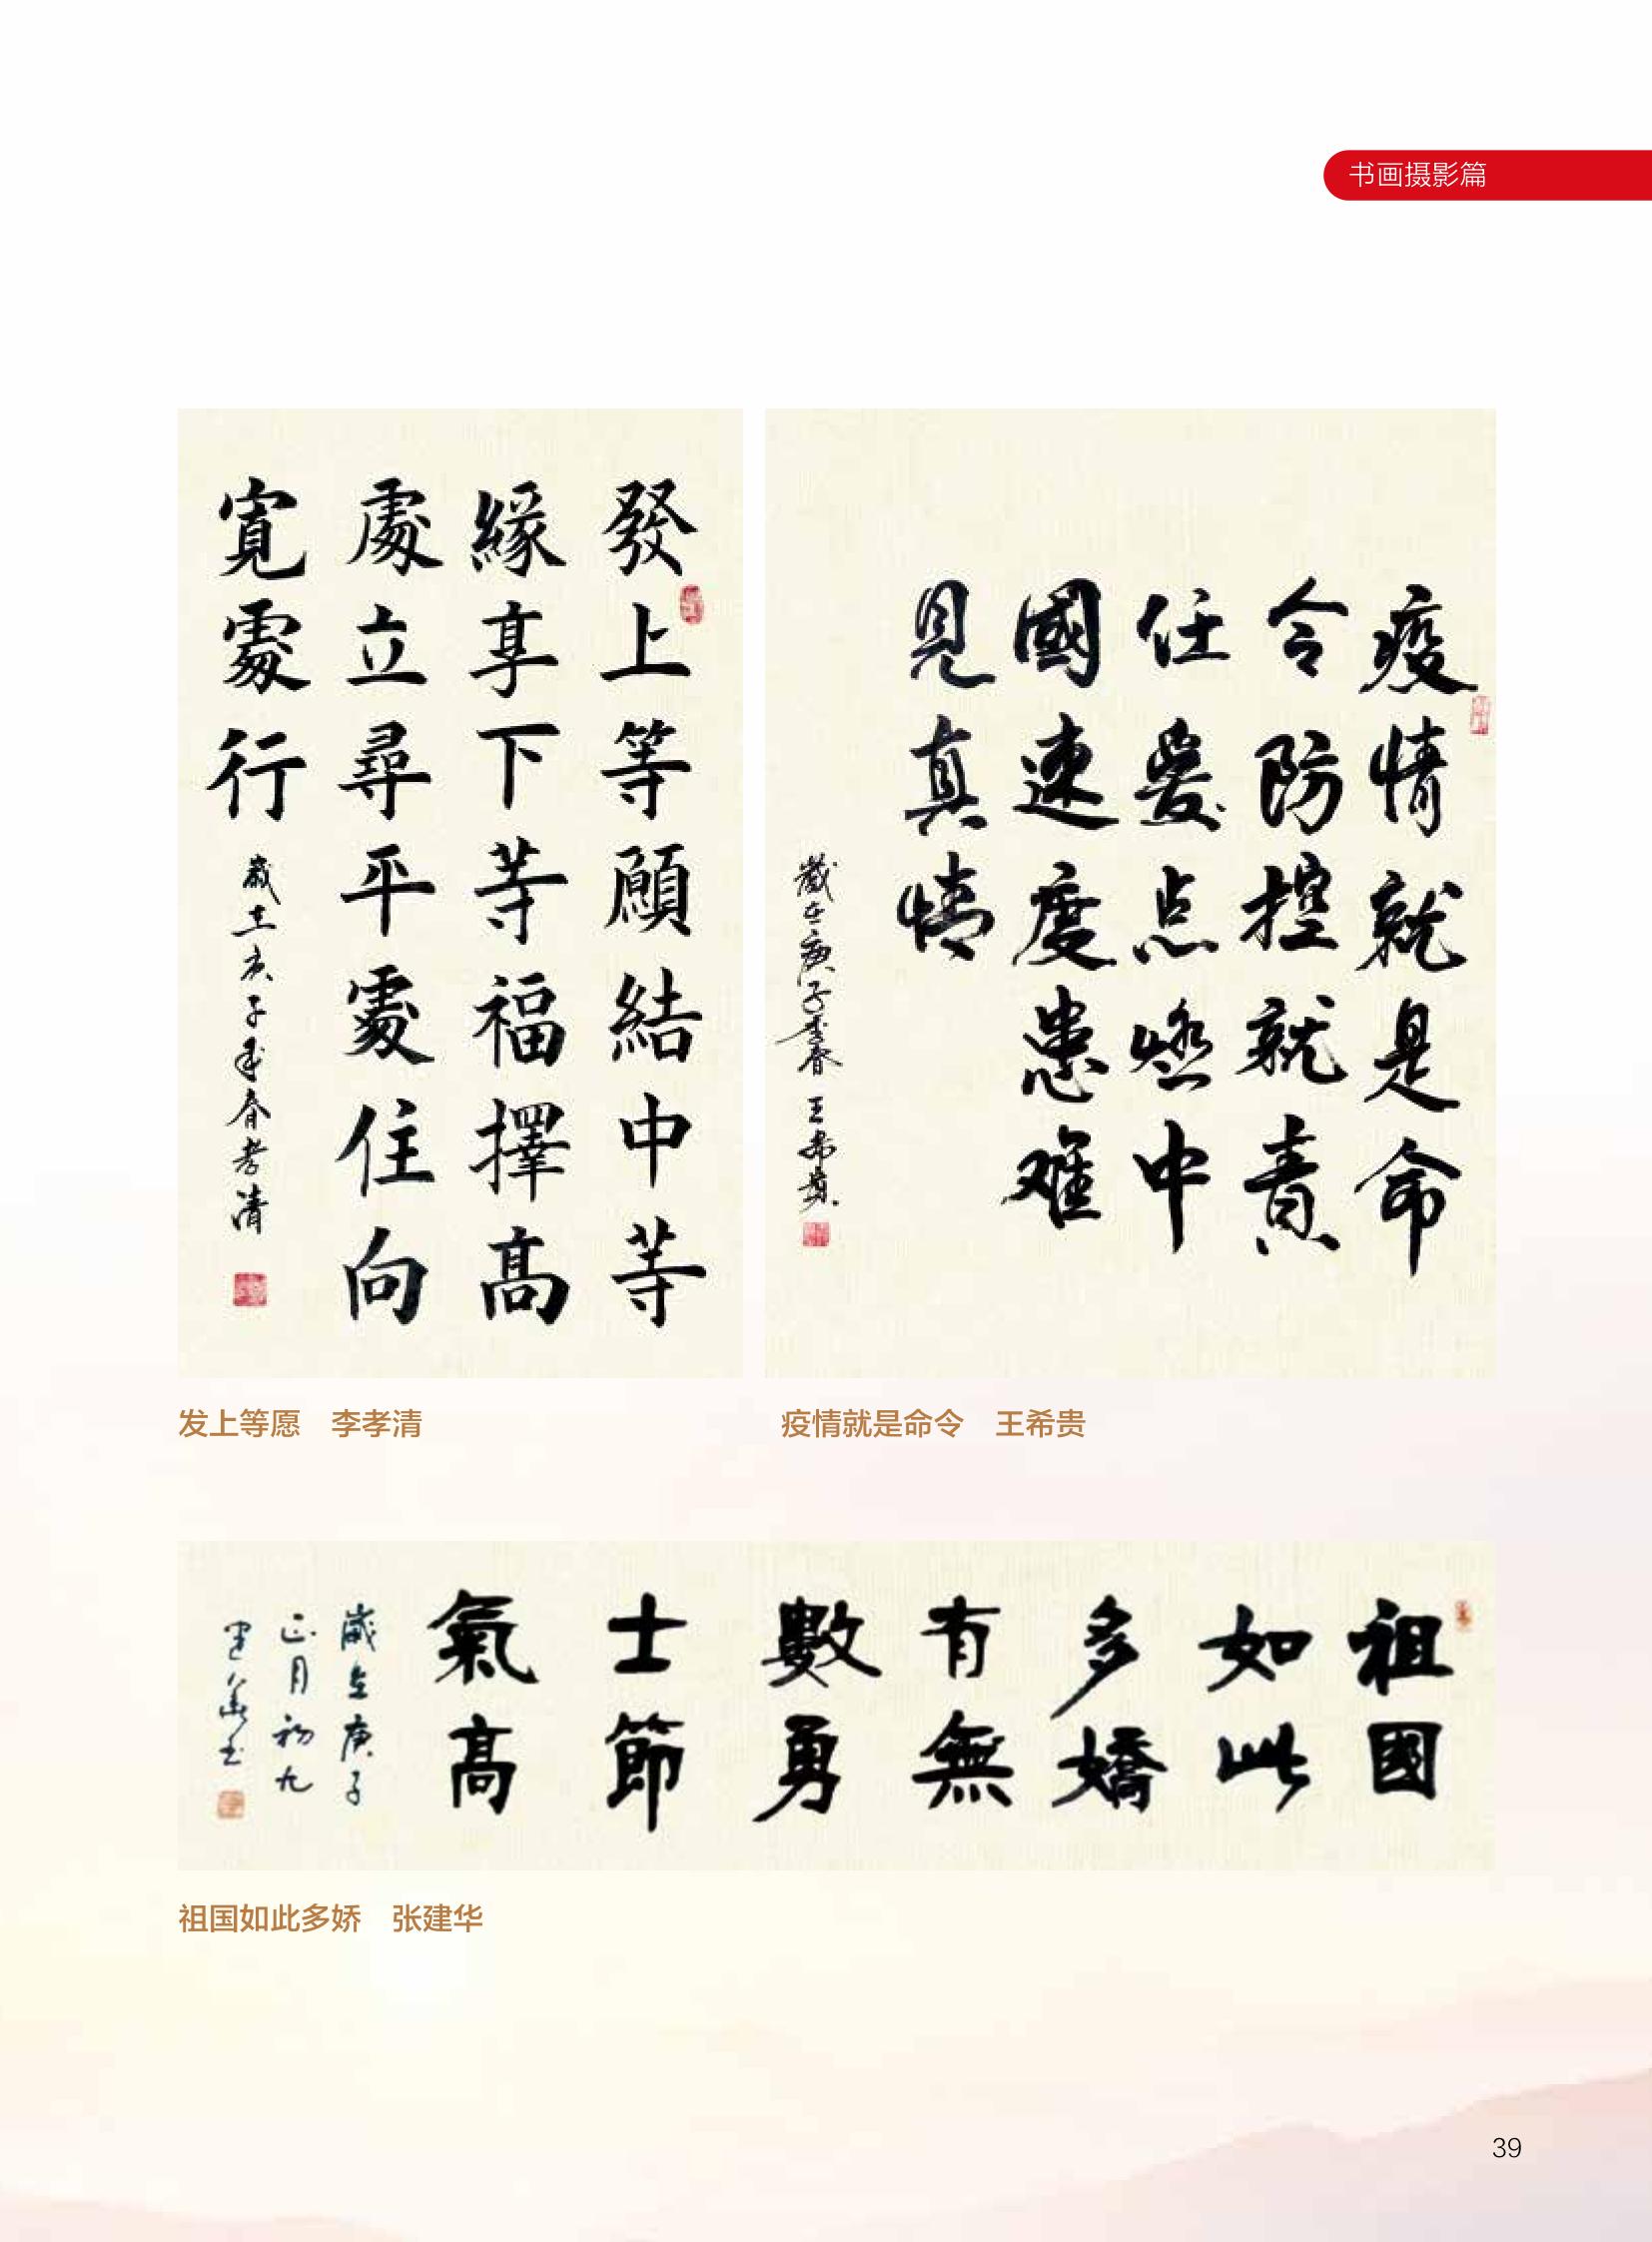 书画摄影篇
發上等願結中等
緣享下等福擇高
處立尋平處住向
寬處行
歲在庚子季春孝清
发上等愿 李孝清
疫情就是命
令防控就責
任愛点燃中
國速度患难
見真情
歲在庚子季春 王希貴
疫情就是命令 王希贵
祖國
如此
多嬌
有無
數勇
士節
氣高
歲在庚子
正月初九
建華书
祖国如此多娇 张建华
39